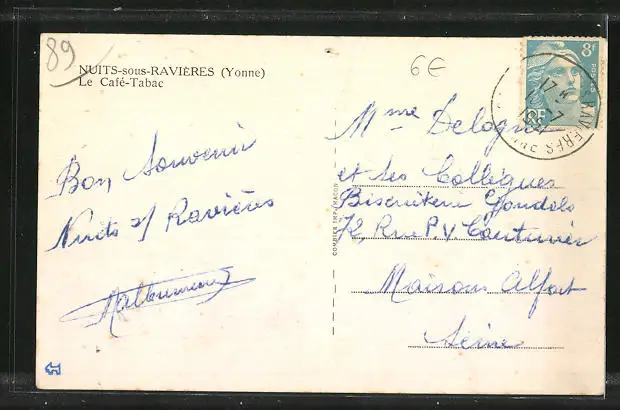 89
NUITS-sous-RAVIÈRES (Yonne)
Le Café-Tabac
6€
8F
POSTES
RF
17 H
RAVIERES
Bon Souvenir
Nuits s/ Ravières
COMBIER IMP. MACON
Mme Delogne
et ses Collègues
Biscuiterie Gondolo
72, Rue P V Couturier
Maisons Alfort
Seine